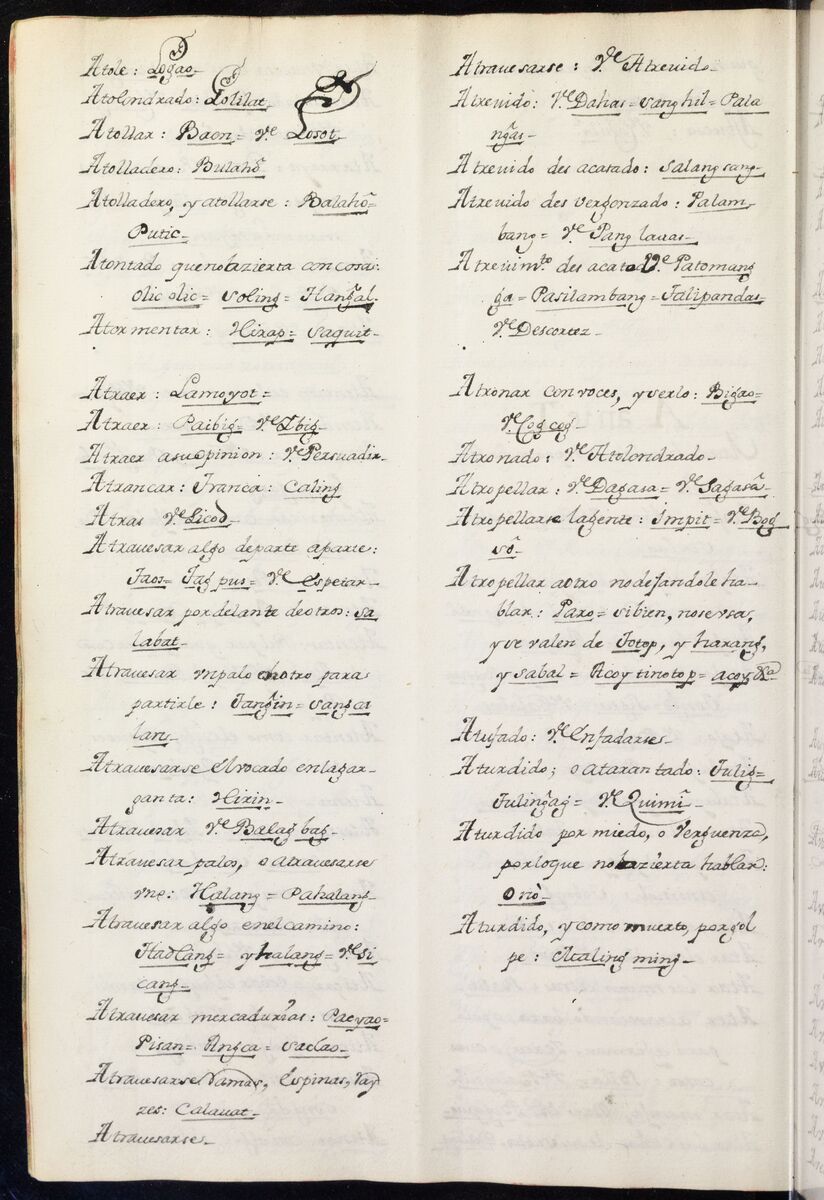 Atole: Logao
Atolondrado: Lolilat
Atollar: Baon = Ve Losot
Atolladero: Bulahô
Atolladero, y atollarse: Balahô=
Putic
Atontado que no azierta con cosa:
olic olic = soling = Hang̃al
Atormentar: Hirap = saquit
Atraer: Lamoyot =
Atraer: Paibig = Ve Ibig
Atraer a su opinion: Ve Persuadir
Atrancar: Tranca: Caling
Atras Ve Licod
Atrauesar algo de parte a parte:
Taos = Tag pus = Ve Espetar
Atrauesar por delante de otros: sa
labat
Atrauesar vn palo en otro para
partirle: Tang̃in = sangca
lan
Atrauesarse el vocado en la gar-
ganta: Hirin
Atrauesar Ve Balag bag
Atrauesar palos, o atrauesarse
vno: Halang = Pahalang
Atrauesar algo en el camino:
Hadlang = y halang = Ve si
cang
Atrauesar mercadurias: Pacyao=
Pisan = Angca = saclao
Atrauesarse ramas, Espinas, ray
zes: Calauat
Atrauesarse
Atrauesarse: Ve Atreuido
Atreuido: Ve Dahas = sanghil = Pala
ng̃as
Atreuido des acatado: salang sang
Atreuido des vergonzado: Palam
bang = Ve Pang lauas
Atreuimto. des acatado Ve Patomang
ga = Pasilambang = Talipandas
Ve Descortez
Atronar con voces, y serlo: Bigao=
Ve Cog cog
Atronado: Ve Atolondrado
Atropellar: Ve Dagasa = Ve Sagasâ
Atropellarse la gente: Impit = Ve Bog
sô
Atropellar a otro no dejandole ha-
blar: Paro = si bien, no se vsa,
y se valen de Totop, y harang,
y sabal = Acoy tinotop = acoy &a
Atufado: Ve enfadarse
Aturdido; o atarantado: Tulig=
Tuling̃ag = Ve Quimî
Aturdido por miedo, o verguenza,
por lo que no azierta hablar:
Onò
Aturdido, y como muerto, por gol
pe: Ataling ming